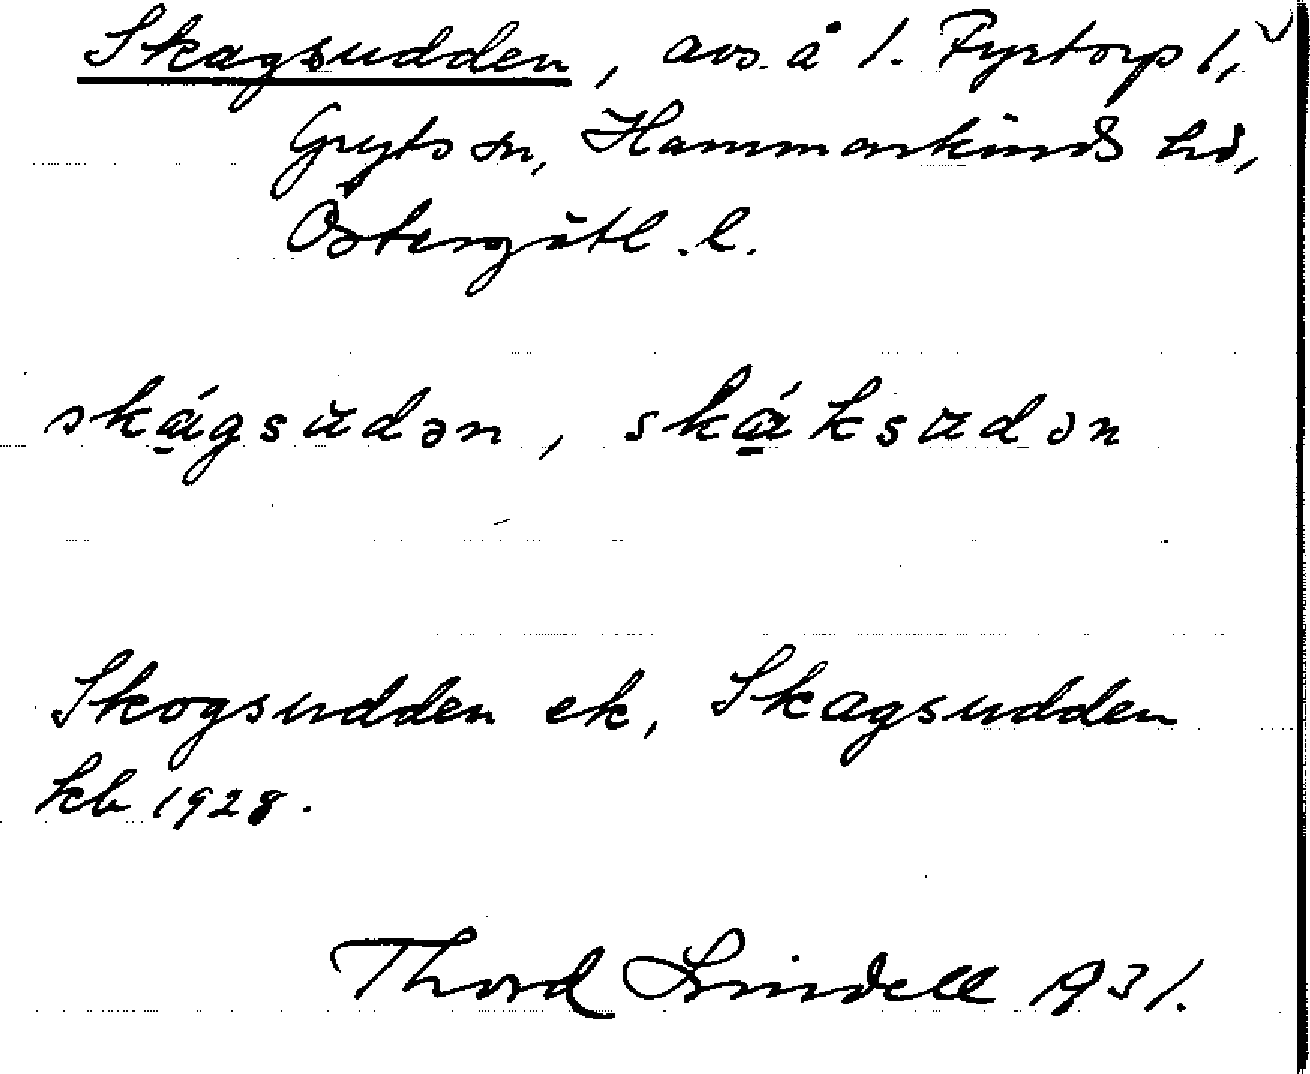 Skagsudden, avs. å 1. Fyrtorp 1,
Gryts sn, Hammarkinds hd,
Östergötl. l.
skągsudən, skąksudən
Skogsudden ek, Skagsudden
kb 1928.
Thord Lindell 1931.